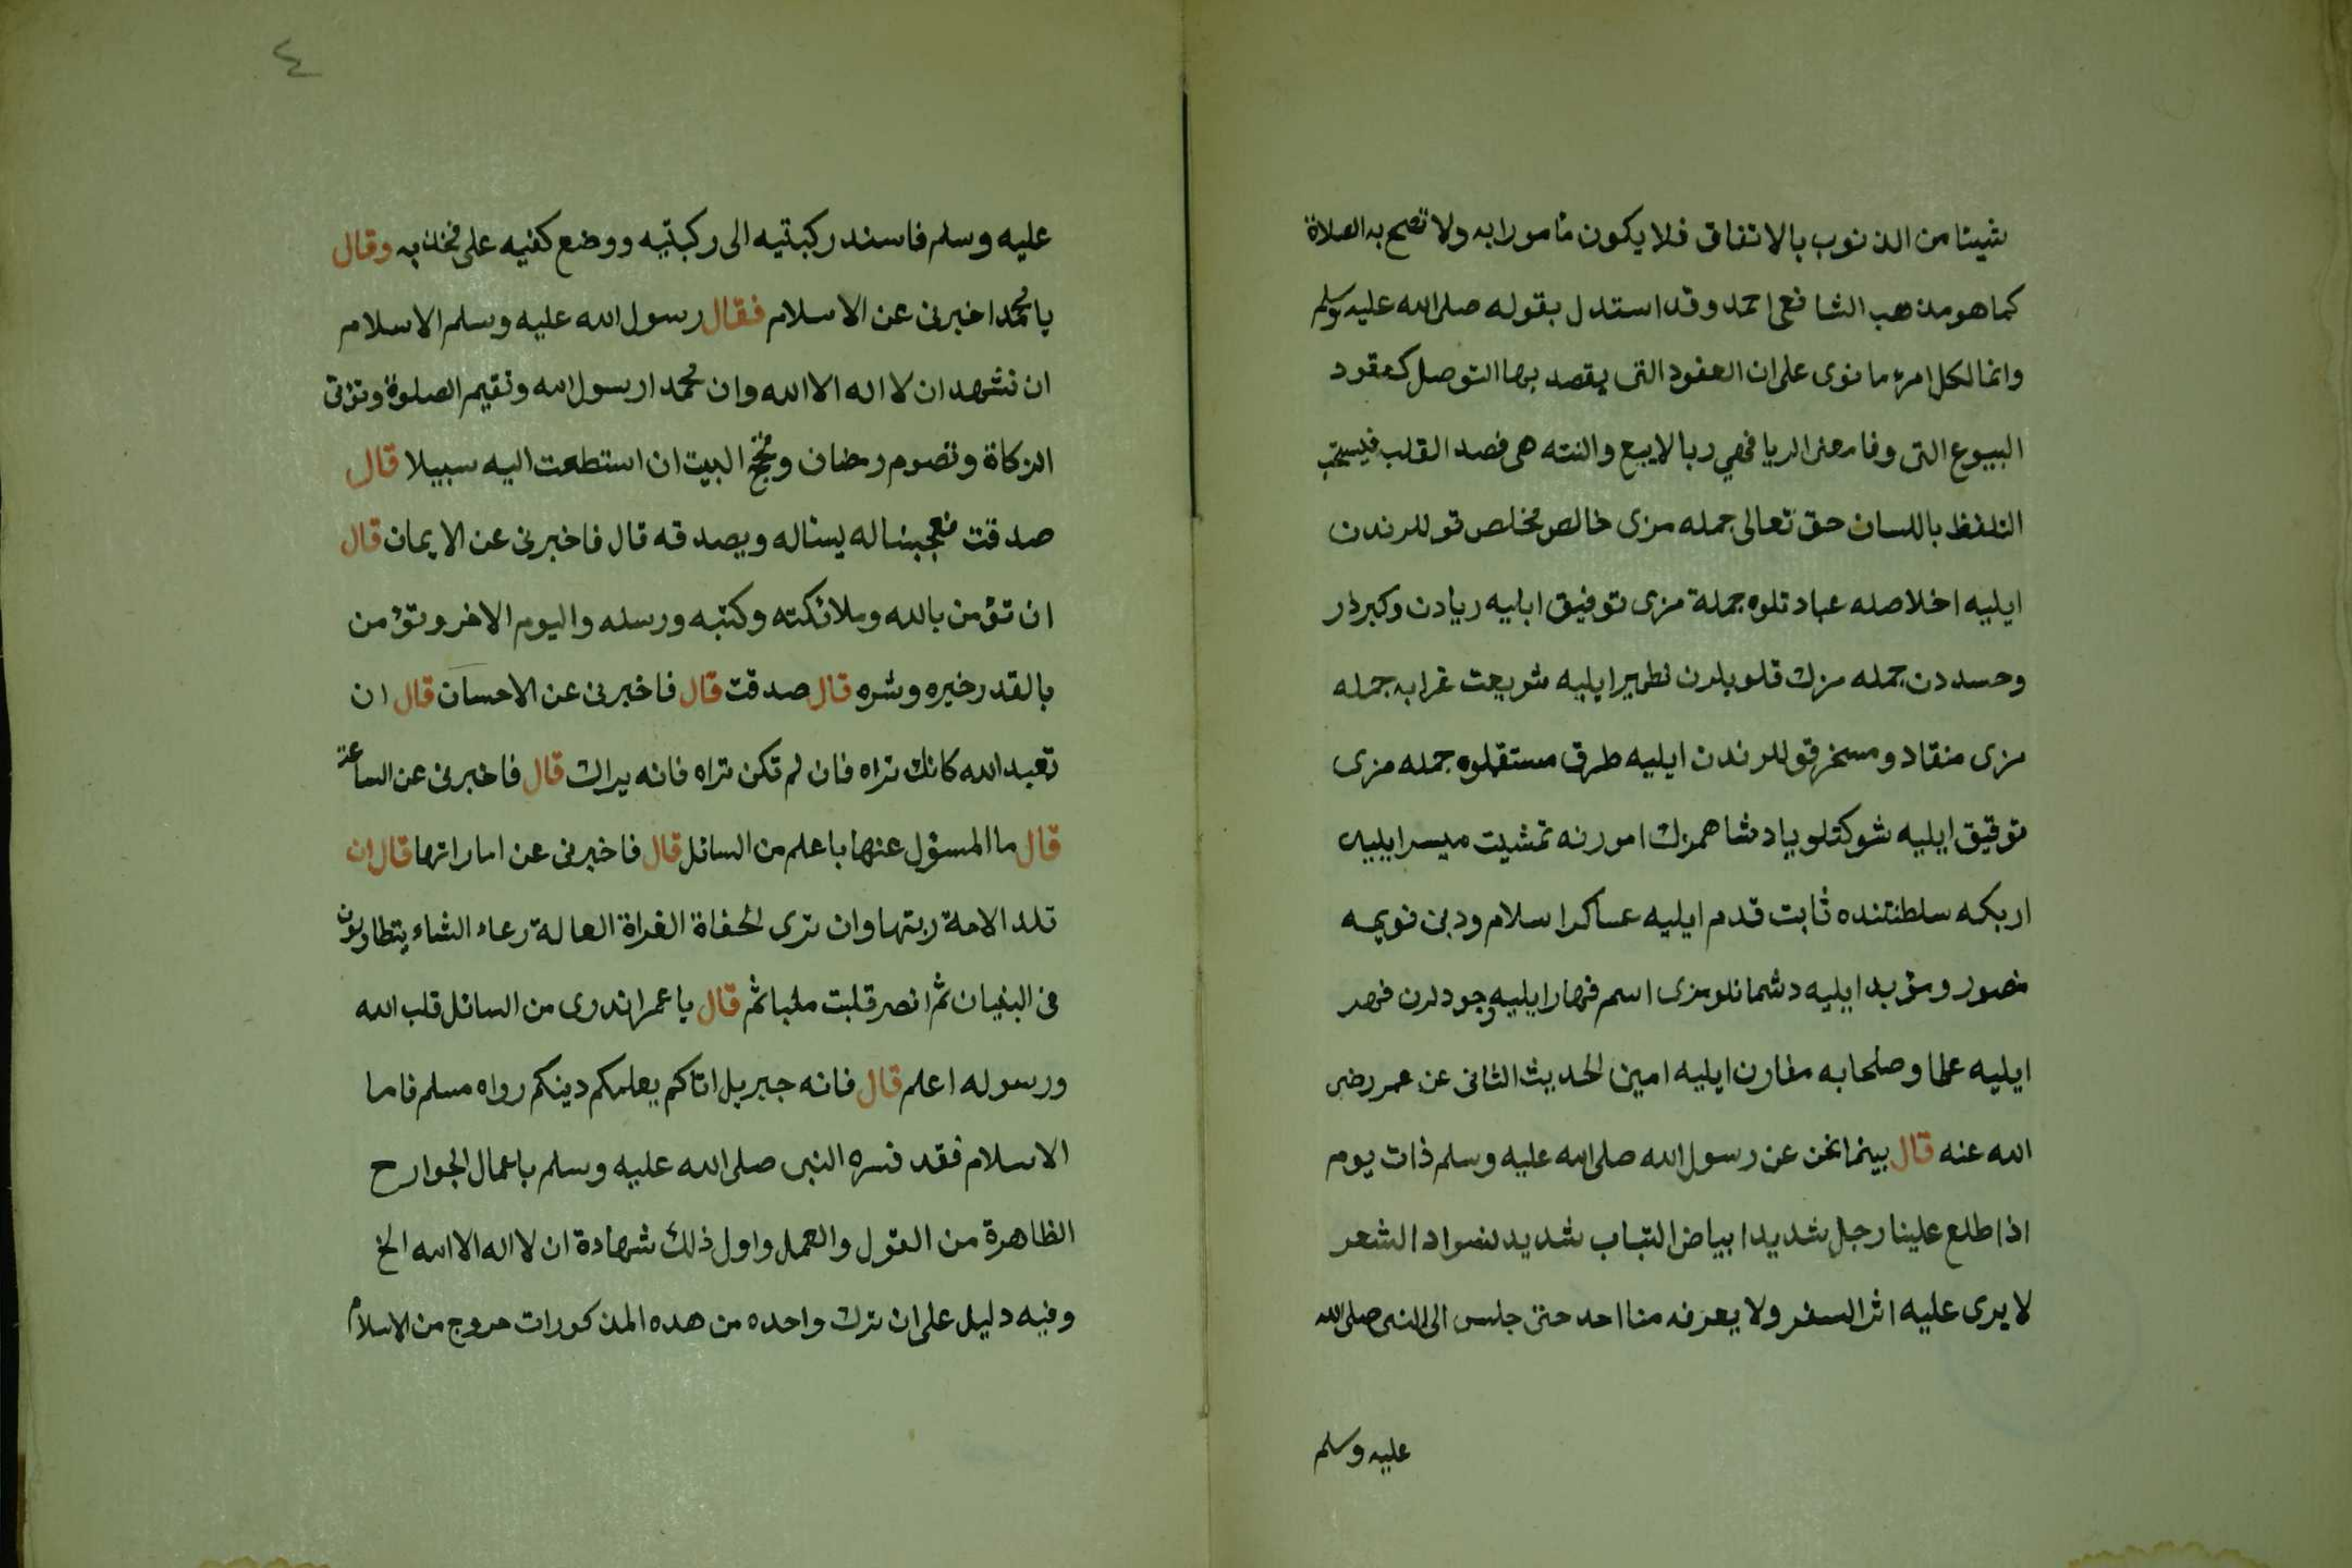 شيئا من الذنوب بالاتفاق فلا يكون مأمورا به ولا تصح به الصلاة
كما هو مذهب الشافعى احمد وقد استدل بقوله صلى الله عليه وسلم
وانما لكل امرء ما نوى على ان العقود التى يقصد بها التوصل كعقود
البيوع التى وفا معنى الربا فهي ربا لا بيع والنته هى قصد القلب فيستحب
التلفظ باللسان حق تعالى جمله مزى خالص مخلص قوللرندن
ايليه اخلاصله عبادتلوه جملة مزى توفيق ابليه ريادن وكبردر
وحسددن جمله مزك قلوبلرن تطهير ايليه شريعت غرايه جمله
مزى منقاد ومسخر قوللرندن ايليه طرق مستقملوه جمله مزى
توفيق ايليه شوكتلو پادشاهمزك امورنه تمشيت ميسر ايليه
اريكه سلطنتنده ثابت قدم ايليه عساكر اسلام ودين قويمه
منصور ومؤيد ايليه دشمانلومزى اسم قهار ايليه وجودلرن قهر
ايليه علما وصلحايه مقارن ايليه امين الحديث الثانى عن عمر رضى
الله عنه قال بينما نحن عن رسول الله صلى الله عليه وسلم ذات يوم
اذا طلع علينا رجل شديد ابياض التباب شديد لسواد الشعر
لا يرى عليه اثر السفر ولا يعرفه منا احد حتى جلس الى النبى صلى الله
عليه وسلم
٤
عليه وسلم فاسند ركبتيه الى ركبتيه ووضع كفيه على فخذيه وقال
يا محمد اخبرنى عن الاسلام فقال رسول الله عليه وسلم الاسلام
ان تشهد ان لا اله الا الله وان محمدا رسول الله وتقيم الصلوة وتؤتى
الزكاة وتصوم رمضان وتحج البيت ان استطعت اليه سبيلا قال
صدقت فعجبنا له يساله ويصدقه قال فاخبرنى عن الايمان قال
ان تؤمن بالله وملائكته وكتبه ورسله واليوم الاخر وتؤمن
بالقدر خيره وشره قال صدقت قال فاخبرنى عن الاحسان قال ان
تعبد الله كانك تراه فان لم تكن تراه فانه يراك قال فاخبرنى عن الساعة
قال ما المسؤل عنها باعلم من السائل قال فاخبرنى عن اماراتها قال ان
تلد الامة ربتها وان ترى الحفاة الغراة العالة رعاء الشاء يتطاولون
فى البنيان ثم انصر قلبت مليا ثم قال يا عمر اتدرى من السائل قلب الله
ورسوله اعلم قال فانه جبريل اتاكم يعلمكم دينكم رواه مسلم فاما
الاسلام فقد فسره النبى صلى الله عليه وسلم باعمال الجوارح
الظاهرة من القول والعمل واول ذلك شهادة ان لا اله الا الله الخ
وفيه دليل على ان ترك واحده من هده المذكورات حروج من الاسلام